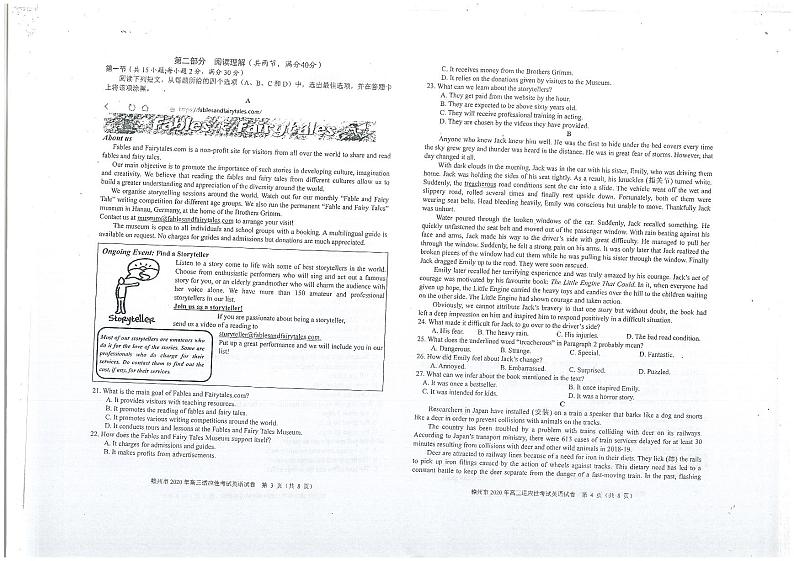 第二部分 阅读理解（共两节，满分40分）
第一节（共15小题;每小题2分，满分30分）
阅读下列短文，从每题所给的四个选项（A、B、C和D）中，选出最佳选项，并在答题卡
上将该项涂黑。
A
https://fablesandfairytales.com/
Fables & Fairytales
About us
Fables and Fairytales.com is a non-profit site for visitors from all over the world to share and read
fables and fairy tales.
Our main objective is to promote the importance of such stories in developing culture, imagination
and creativity. We believe that reading the fables and fairy tales from different cultures allow us to
build a greater understanding and appreciation of the diversity around the world.
We organise storytelling sessions around the world. Watch out for our monthly "Fable and Fairy
Tale" writing competition for different age groups. We also run the permanent "Fable and Fairy Tales"
museum in Hanau, Germany, at the home of the Brothers Grimm.
Contact us at museum@fablesandfairytales.com to arrange your visit!
The museum is open to all individuals and school groups with a booking. A multilingual guide is
available on request. No charges for guides and admissions but donations are much appreciated.
Ongoing Event: Find a Storyteller
Listen to a story come to life with some of best storytellers in the world.
Choose from enthusiastic performers who will sing and act out a famous
story for you, or an elderly grandmother who will charm the audience with
her voice alone. We have more than 150 amateur and professional
storytellers in our list.
Join us as a storyteller!
If you are passionate about being a storyteller,
send us a video of a reading to
storyteller@fablesandfairytales.com.
Put up a great performance and we will include you in our
list!
Storyteller
Most of our storytellers are amateurs who
do it for the love of the stories. Some are
professionals who do charge for their
services. Do contact them to find out the
cost, if any, for their services.
21. What is the main goal of Fables and Fairytales.com?
A. It provides visitors with teaching resources.
B. It promotes the reading of fables and fairy tales.
C. It promotes various writing competitions around the world.
D. It conducts tours and lessons at the Fables and Fairy Tales Museum.
22. How does the Fables and Fairy Tales Museum support itself?
A. It charges for admissions and guides.
B. It makes profits from advertisements.
2020年高三适应性考试英语试卷 第 3 页（共 8 页）
C. It receives money from the Brothers Grimm.
D. It relies on the donations given by visitors to the Museum.
23. What can we learn about the storytellers?
A. They get paid from the website by the hour.
B. They are expected to be above sixty years old.
C. They will receive professional training in acting.
D. They are chosen by the videos they have provided.
B
Anyone who knew Jack knew him well. He was the first to hide under the bed covers every time
the sky grew grey and thunder was heard in the distance. He was in great fear of storms. However, that
day changed it all.
With dark clouds in the morning, Jack was in the car with his sister, Emily, who was driving them
home. Jack was holding the sides of his seat tightly. As a result, his knuckles (指关节) turned white.
Suddenly, the treacherous road conditions sent the car into a slide. The vehicle went off the wet and
slippery road, rolled several times and finally rest upside down. Fortunately, both of them were
wearing seat belts. Head bleeding heavily, Emily was conscious but unable to move. Thankfully Jack
was unhurt.
Water poured through the broken windows of the car. Suddenly, Jack recalled something. He
quickly unfastened the seat belt and moved out of the passenger window. With rain beating against his
face and arms, Jack made his way to the driver's side with great difficulty. He managed to pull her
through the window. Suddenly, he felt a strong pain on his arms. It was only later that Jack realized the
broken pieces of the window had cut them while he was pulling his sister through the window. Finally
Jack dragged Emily up to the road. They were soon rescued.
Emily later recalled her terrifying experience and was truly amazed by his courage. Jack's act of
courage was motivated by his favourite book: The Little Engine That Could. In it, when everyone had
given up hope, the Little Engine carried the heavy toys and candies over the hill to the children waiting
on the other side. The Little Engine had shown courage and taken action.
Obviously, we cannot attribute Jack's bravery to that one story but without doubt, the book had
left a deep impression on him and inspired him to respond positively in a difficult situation.
24. What made it difficult for Jack to go over to the driver's side?
A. His fear. B. The heavy rain. C. His injuries. D. The bad road condition.
25. What does the underlined word "treacherous" in Paragraph 2 probably mean?
A. Dangerous. B. Strange. C. Special. D. Fantastic.
26. How did Emily feel about Jack's change?
A. Annoyed. B. Embarrassed. C. Surprised. D. Puzzled.
27. What can we infer about the book mentioned in the text?
A. It was once a bestseller. B. It once inspired Emily.
C. It was intended for kids. D. It was a horror story.
C
Researchers in Japan have installed (安装) on a train a speaker that barks like a dog and snorts
like a deer in order to prevent collisions with animals on the tracks.
The country has been troubled by a problem with trains colliding with deer on its railways.
According to Japan's transport ministry, there were 613 cases of train services delayed for at least 30
minutes resulting from collisions with deer and other wild animals in 2018-19.
Deer are attracted to railway lines because of a need for iron in their diets. They lick (舔) the rails
to pick up iron filings caused by the action of wheels against tracks. This dietary need has led to a
constant battle to keep the deer separate from the danger of a fast-moving train. In the past, flashing
2020年高三适应性考试英语试卷 第 4 页（共 8 页）